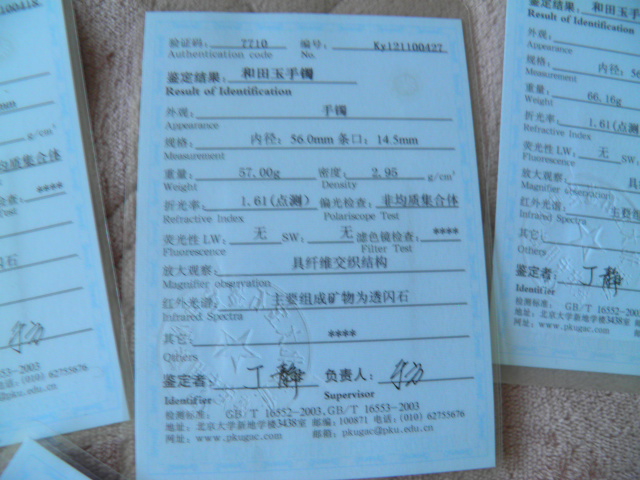 验证码: 7710 编号: Ky121100427
Authentication code No.
鉴定结果: 和田玉手镯
Result of Identification
外观: 手镯
Appearance
规格: 内径: 56.0mm 条口: 14.5mm
Measurement
重量: 57.00g 密度: 2.95 g/cm³
Weight Density
折光率: 1.61(点测) 偏光检查: 非均质集合体
Refractive Index Polariscope Test
荧光性 LW: 无 SW: 无 滤色镜检查: ****
Fluorescence Filter Test
放大观察: 具纤维交织结构
Magnifier observation
红外光谱: 主要组成矿物为透闪石
Infrared Spectra
其它: ****
Others
鉴定者: 丁静 负责人:
Identifier Supervisor
检测标准: GB/T 16552-2003, GB/T 16553-2003
地址: 北京大学新地学楼3438室 邮编: 100871 电话: (010) 62755676
网址: www.pkugac.com 邮箱: pkugac@pku.edu.cn
mm
g/cm³
均质集合体
****
闪石
-2003
(010) 62755676
@pku.edu.cn
鉴定结果: 和田玉手
Result of Identification
外观:
Appearance
规格: 内径: 56
Measurement
重量: 66.16g
Weight
折光率: 1.61(点测
Refractive Index
荧光性 LW: 无 S
Fluorescence
放大观察: 具
Magnifier observation
红外光谱: 主要
Infrared Spectra
其它:
Others
鉴定者: 丁静
Identifier
检测标准: GB/T 1655
地址: 北京大学新地学楼3438室
网址: www.pkugac.com